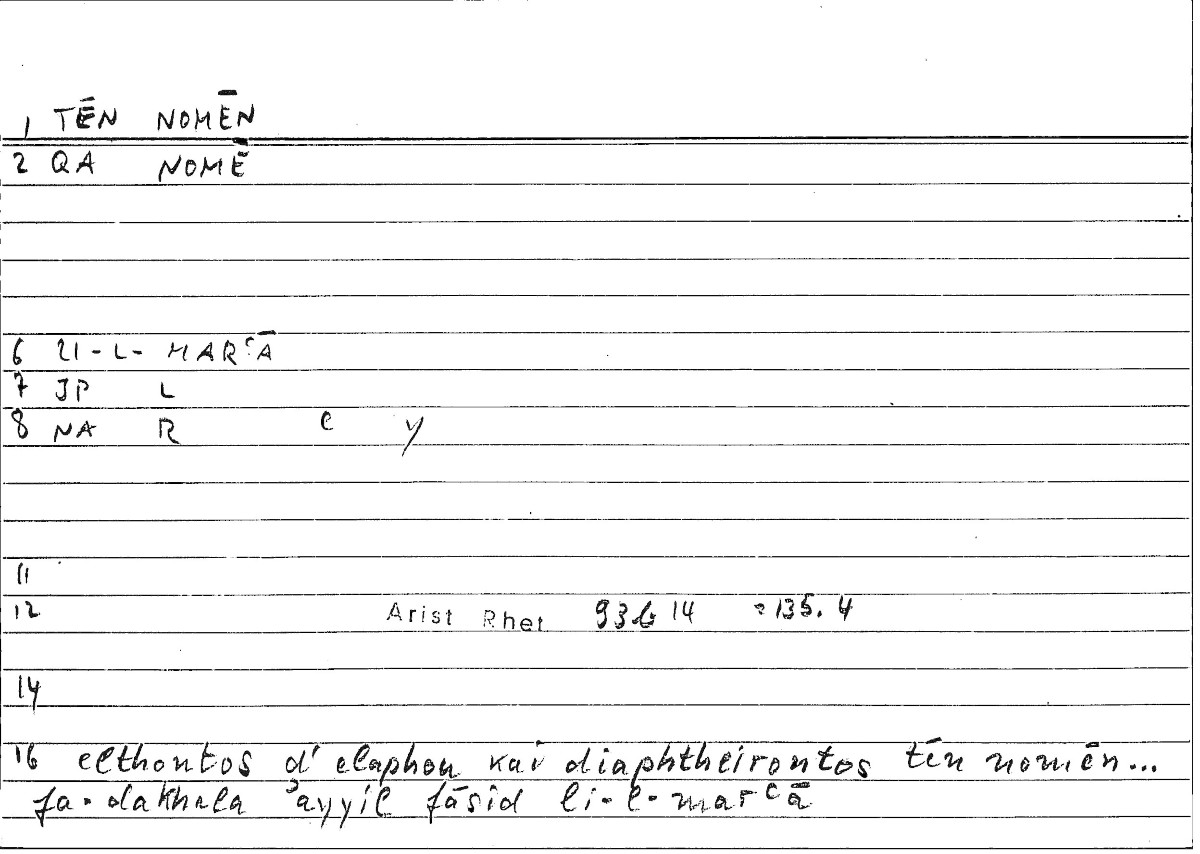 1 TĒN NOMĒN
2 QA NOMĒ
6 LI-L-MARʿĀ
7 JP L
8 NA R c y
11
12 Arist Rhet 93b 14 = 135.4
14
16 elthontos d' elaphou kai diaphtheirontos tēn nomēn...
fa-dakhala ʾayyil fāsid li-l-marʿā